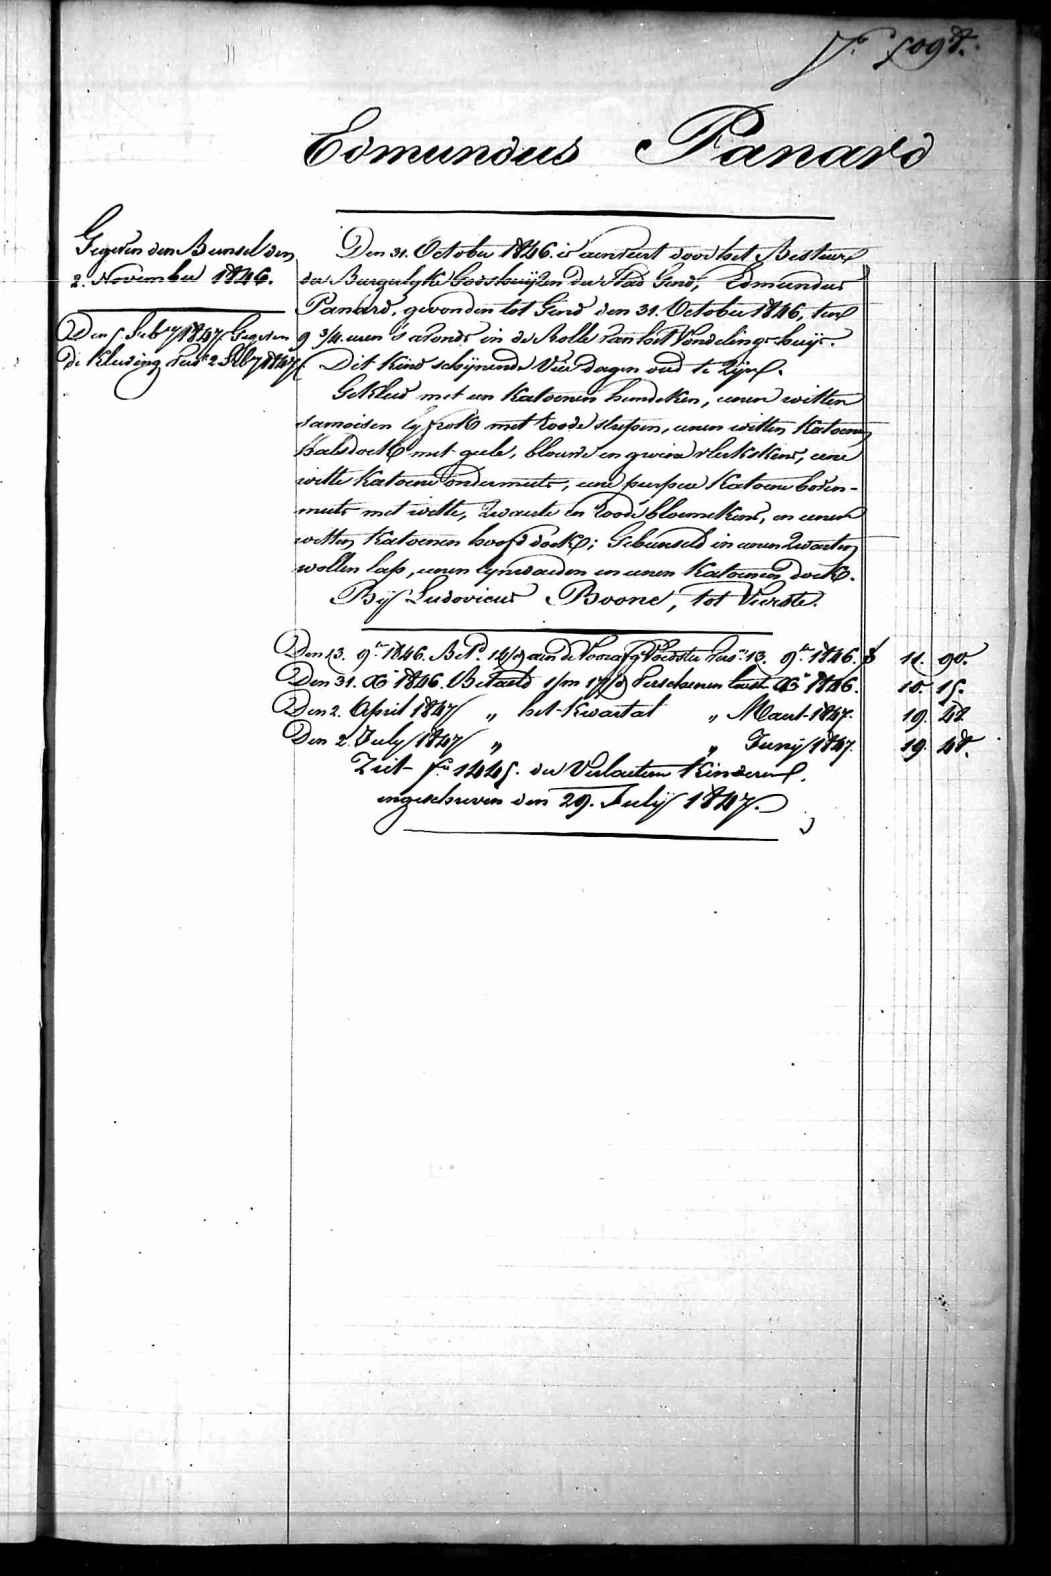 Edmundus Panard
Gegeven den Bunsel den
2. November 1846.
Den 5 Feb.ry 1847 Gegeven
de Kleeding vers. 2 Feb.ry 1847
Den 31. October 1846. is aenveert door het Bestuur
der Burgerlyke Godshuizen der Stad Gend, Edmundus
Panard, gevonden tot Gend den 31. October 1846, ten
9 3/4 uren 's avonds in de Rolle van het Vondelingshuijs.
Dit Kind schijnende Vier dagen oud te Zijn.
Gekleed met een Katoenen hemdeken, eenen witten
siamoisen lyfrok met roode streepen, eenen witten Katoenen
halsdoek met geele, blouwe en groene vlekskens, eene
witte Katoene ondermuts, eene purpere Katoene boven-
muts met witte, Zwarte en roode bloemekens, en eenen
witten Katoenen hoofddoek; Gebunseld in eenen Zwarten
wollen lap, eenen lynwaeden en eenen Katoenen doek.
Bij Ludovicus Boone, tot Vurste.
Den 13. 9.er 1846. Bet.d aen de Voorafg. Voedster vers. 13. 9.er 1846. f 11. 90.
Den 31. X.er 1846. Betaeld verschenen X.er 1846. 10. 15.
Den 2. April 1847 „ het Kwartal „ Maert 1847. 19. 48.
Den 2. July 1847 „ „ Junij 1847. 19. 48.
Ziet f.o 1445. der Verlaeten Kinderen
ingeschreven den 29. Julij 1847.